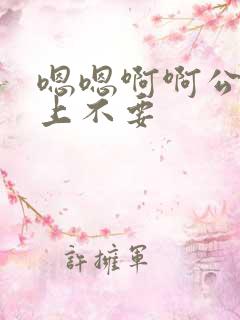 嗯嗯啊啊公
上不要
許擁軍